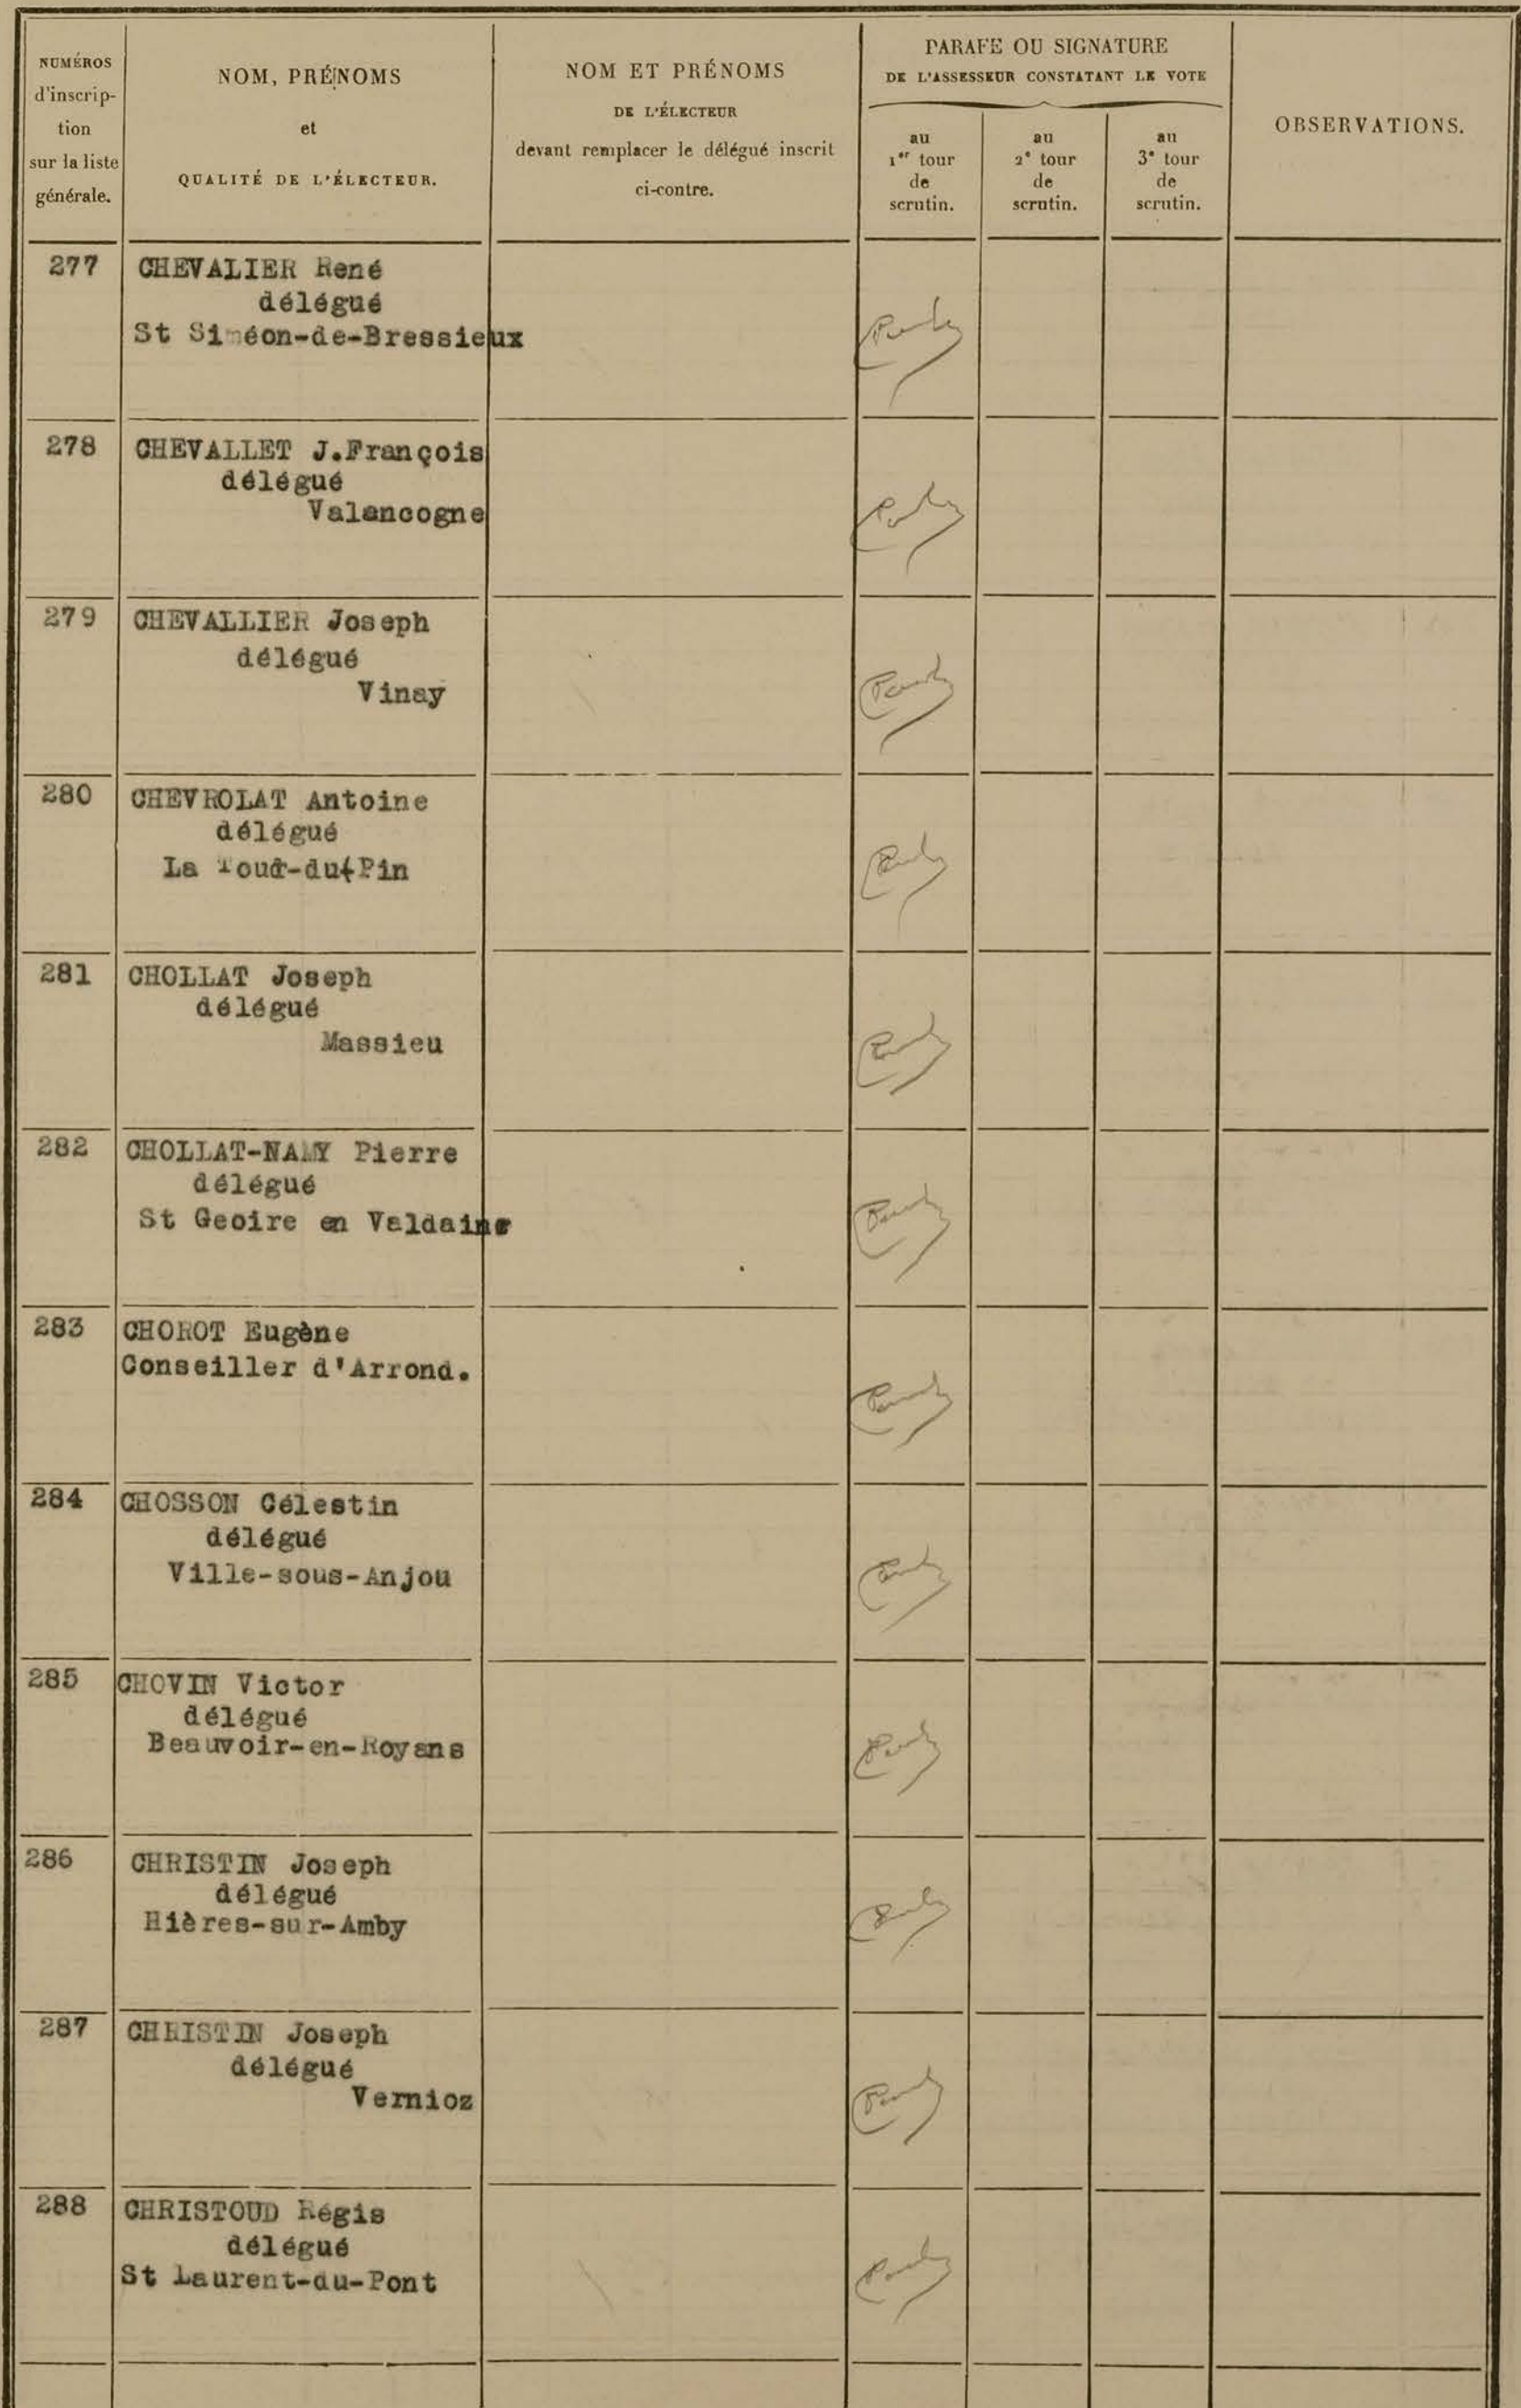 NUMÉROS
d'inscrip-
tion
sur la liste
générale.
NOM, PRÉNOMS
et
QUALITÉ DE L'ÉLECTEUR.
NOM ET PRÉNOMS
DE L'ÉLECTEUR
devant remplacer le délégué inscrit
ci-contre.
PARAFE OU SIGNATURE
DE L'ASSESSEUR CONSTATANT LE VOTE
au
1er tour
de
scrutin.
au
2e tour
de
scrutin.
au
3e tour
de
scrutin.
OBSERVATIONS.
277 CHEVALIER René
délégué
St Siméon-de-Bressieux
278 CHEVALLET J.François
délégué
Valencogne
279 CHEVALLIER Joseph
délégué
Vinay
280 CHEVROLAT Antoine
délégué
La Tour-du-Pin
281 CHOLLAT Joseph
délégué
Massieu
282 CHOLLAT-NAMY Pierre
délégué
St Geoire en Valdaine
283 CHOROT Eugène
Conseiller d'Arrond.
284 CHOSSON Célestin
délégué
Ville-sous-Anjou
285 CHOVIN Victor
délégué
Beauvoir-en-Royans
286 CHRISTIN Joseph
délégué
Hières-sur-Amby
287 CHRISTIN Joseph
délégué
Vernioz
288 CHRISTOUD Régis
délégué
St Laurent-du-Pont